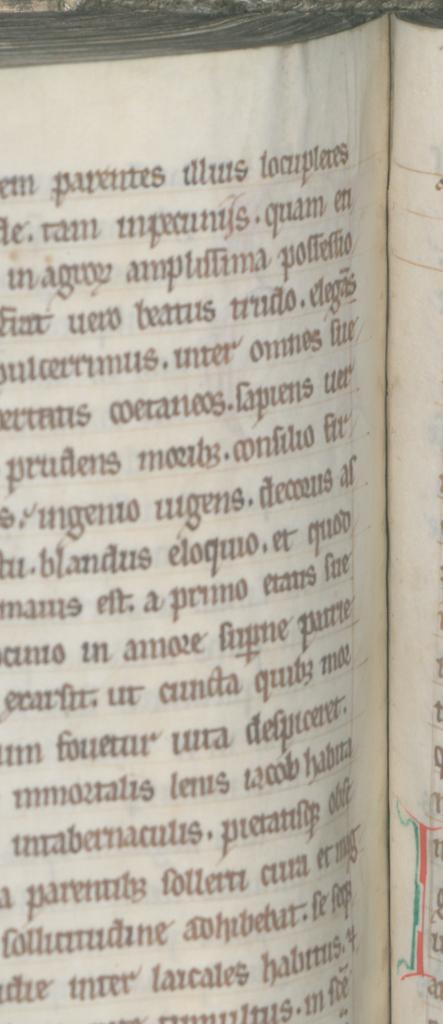 em parentes illius locupletes
tam inpecunijs. quam en
in agroꝝ amplissima possessio
fiat uero beatus trudo. elegãs
pulcerrimus. inter omnes sue
coetaneos. sapiens uer
prudens moribꝫ. consilio fir
s. ingenio uigens. decorus as
tu. blandus eloquio. et quod
manis est. a primo etatis sue
in amore supne patrie
ut cuncta quibꝫ mor
um fouetur uita despiceret.
inmortalis lenis iacob habita
intabernaculis. pietatisqꝫ obse
a parentibꝫ sollerti cura et mag
sollicitudine adhibebat. se
die inter laicales habitus. ⁊
tumultus. in